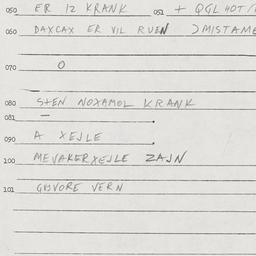 050 ER 12 KRANK 051 + QGL 40T/
060 DAXCAX ER VIL RUEN )MISTAME
070 O
080 STEN NOXAMOL KRANK
081 —
090 A XEJLE
100 MEVAKERXEJLE ZAJN
101 VERN